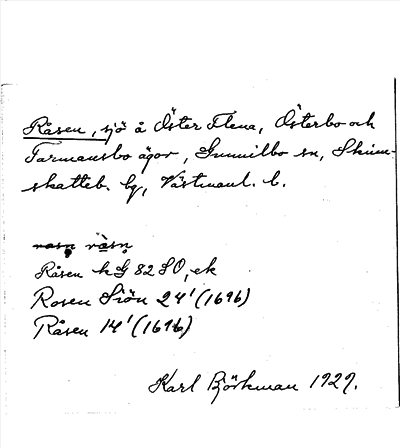 Råsen, sjö å Öster Flena, Österbo och
Tarmansbo ägor, Gunnilbo sn, Skinn-
skatteb. hg, Västmanl. l.
råsn
Råsen h G 82 SO, ek
Rosen Siön 24' (1696)
Råsen 14' (1696)
Karl Björkman 1929.